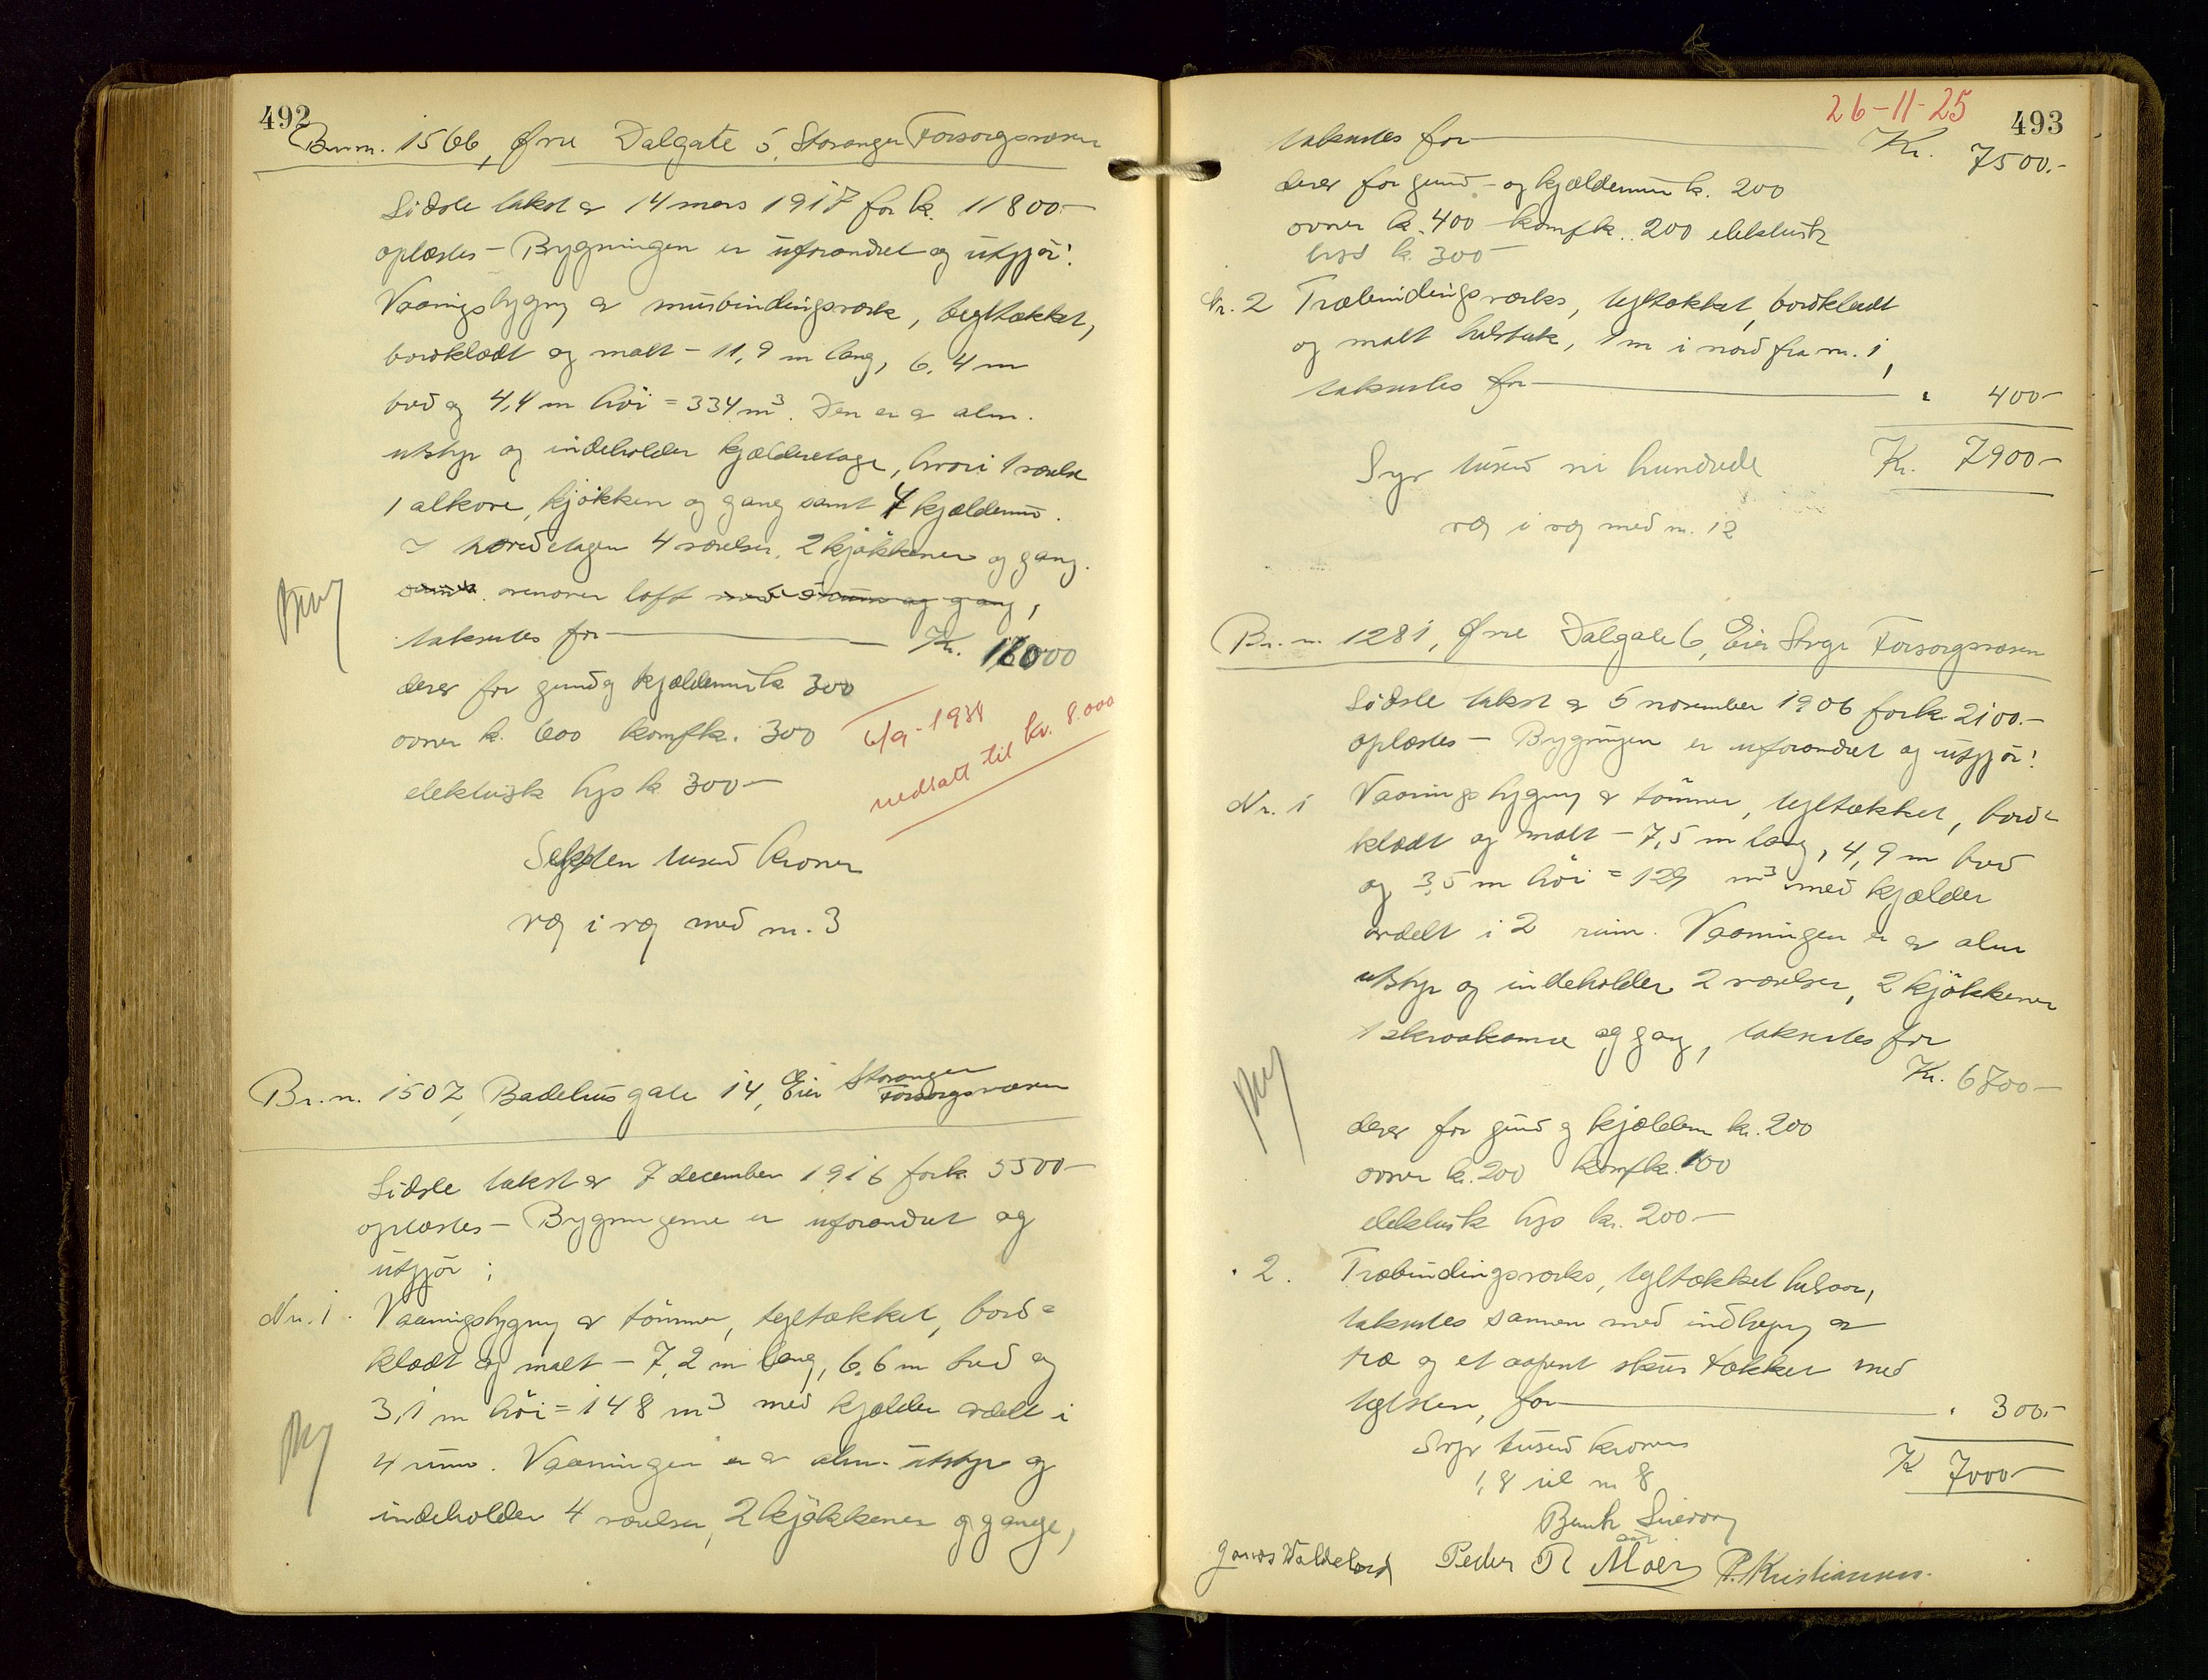 492
Br.nr. 1566, Øvre Dalgate 5, Stavanger Forsorgsvæsen
Sidste takst av 14 mars 1917 for k. 11800.-
oplæstes - Bygningen er uforandret og utgjör:
Vaaningsbygning av murbindingsverk, tegltækket,
bordklædt og malt - 11,9 m lang, 6.4 m
bred og 4,4 m höi = 334 m³. Den er av alm.
utstyr og indeholder kjælderetage, hvori 1 værelse
1 alkove, kjökken og gang samt 4 kjælderrum.
I hovedetagen 4 værelser, 2 kjökkener og gang.
samt ovenover loft med
takseres for Kr. 16000
derav for grund og kjældermur k 300
ovner k. 600 komf k. 300
elektrisk lys k 300-
6/9-1938
nedsatt til kr. 8.000
Seksten tusend kroner
væg i væg med nr. 3
Br.n. 1507, Badehusgate 14, Eier Stavanger
Forsorgsvæsen
Sidste takst av 7 december 1916 for k. 5500-
oplæstes - Bygningerne er uforandret og
utgjör:
Nr. 1. Vaaningsbygning av tömmer, tegltækket, bord=
klædt og malt - 7,2 m lang, 6.6 m bred og
3,1 m höi = 148 m³ med kjælder avdelt i
4 rum. Vaaningen er av alm. utstyr og
indeholder 4 værelser, 2 kjökkener og gange,
26-11-25
493
takseres for Kr. 7500.-
derav for grund- og kjældermur k. 200
ovner k. 400 komf k. 200 elektrisk
lys k. 300-
Nr. 2 Træbindingsverks, tegltækket, bordklædt
og malt , 1 m i nord fra nr. 1,
takseres for " 400-
Kr. 7900-
Syv tusend ni hundrede
væg i væg med nr. 12
Br. n. 1281, Øvre Dalgate 6, Eier Stvgr Forsorgsvæsen
Sidste takst av 5 november 1906 for k. 2100.-
oplæstes - Bygningen er uforandret og utgjör:
Nr. 1 Vaaningsbygning av tömmer, tegltækket, bord=
klædt og malt - 7,5 m lang, 4,9 m bred
og 3,5 m höi = 129 m³ med kjælder
avdelt i 2 rum. Vaaningen er av alm
utstyr og indeholder 2 værelser, 2 kjökkener
1 skraakamer og gang, takseres for
Kr. 6700-
derav for grund og kjælderm kr. 200
ovner k. 200 komf k. 100
elektrisk lys kr. 200-
" 2. Træbindingsverks, tegltækket ,
takseres sammen med indhegning av
træ og et aapent skur tækket med
teglsten, for " 300.-
K 7000-
Syv tusend kroner
1,8 til nr 8
Peder R Moer P. Kristiansen.